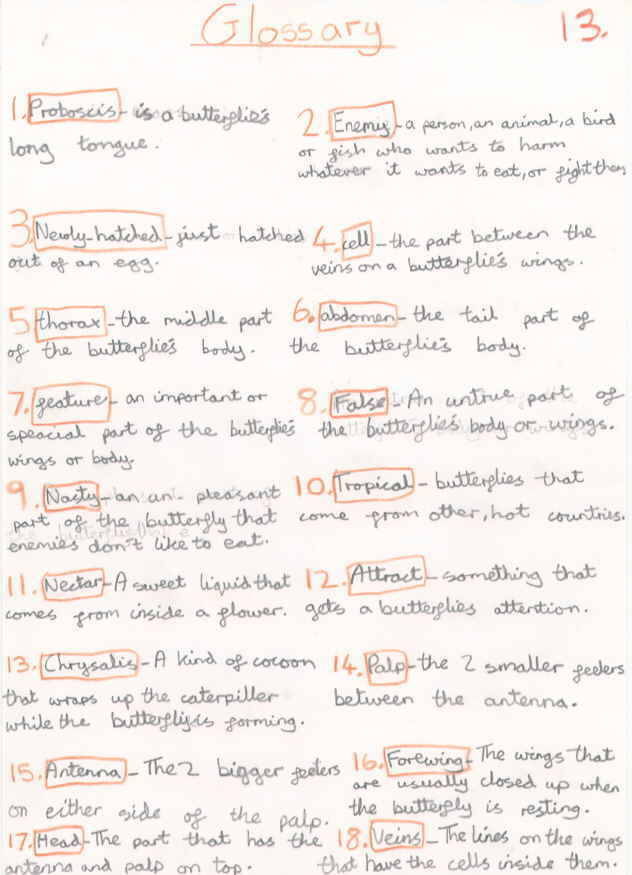 Glossary
13.
1. Proboscis - is a butterflie's
long tongue.
2. Enemy - a person, an animal, a bird
or fish who wants to harm
whatever it wants to eat, or fight them
3. Newly-hatched - just hatched
out of an egg.
4. cell - the part between the
veins on a butterflie's wings.
5 thorax - the middle part
of the butterflie's body.
6. abdomen - the tail part of
the butterflie's body.
7. feature - an important or
speacial part of the butterflie's
wings or body.
8. False - An untrue part of
the butterflie's body or wings.
9. Nasty - an un-pleasant
part of the butterfly that
enemies don't like to eat.
10. Tropical - butterflies that
come from other, hot countries.
11. Nectar - A sweet liquid that
comes from inside a flower.
12. Attract - something that
gets a butterflies attention.
13. Chrysalis - A kind of cocoon
that wraps up the caterpiller
while the butterfly is forming.
14. Palp - the 2 smaller feelers
between the antenna.
15. Antenna - The 2 bigger feelers
on either side of the palp.
16. Forewing - The wings that
are usually closed up when
the butterfly is resting.
17. Head - The part that has the
antenna and palp on top.
18. Veins - The lines on the wings
that have the cells inside them.